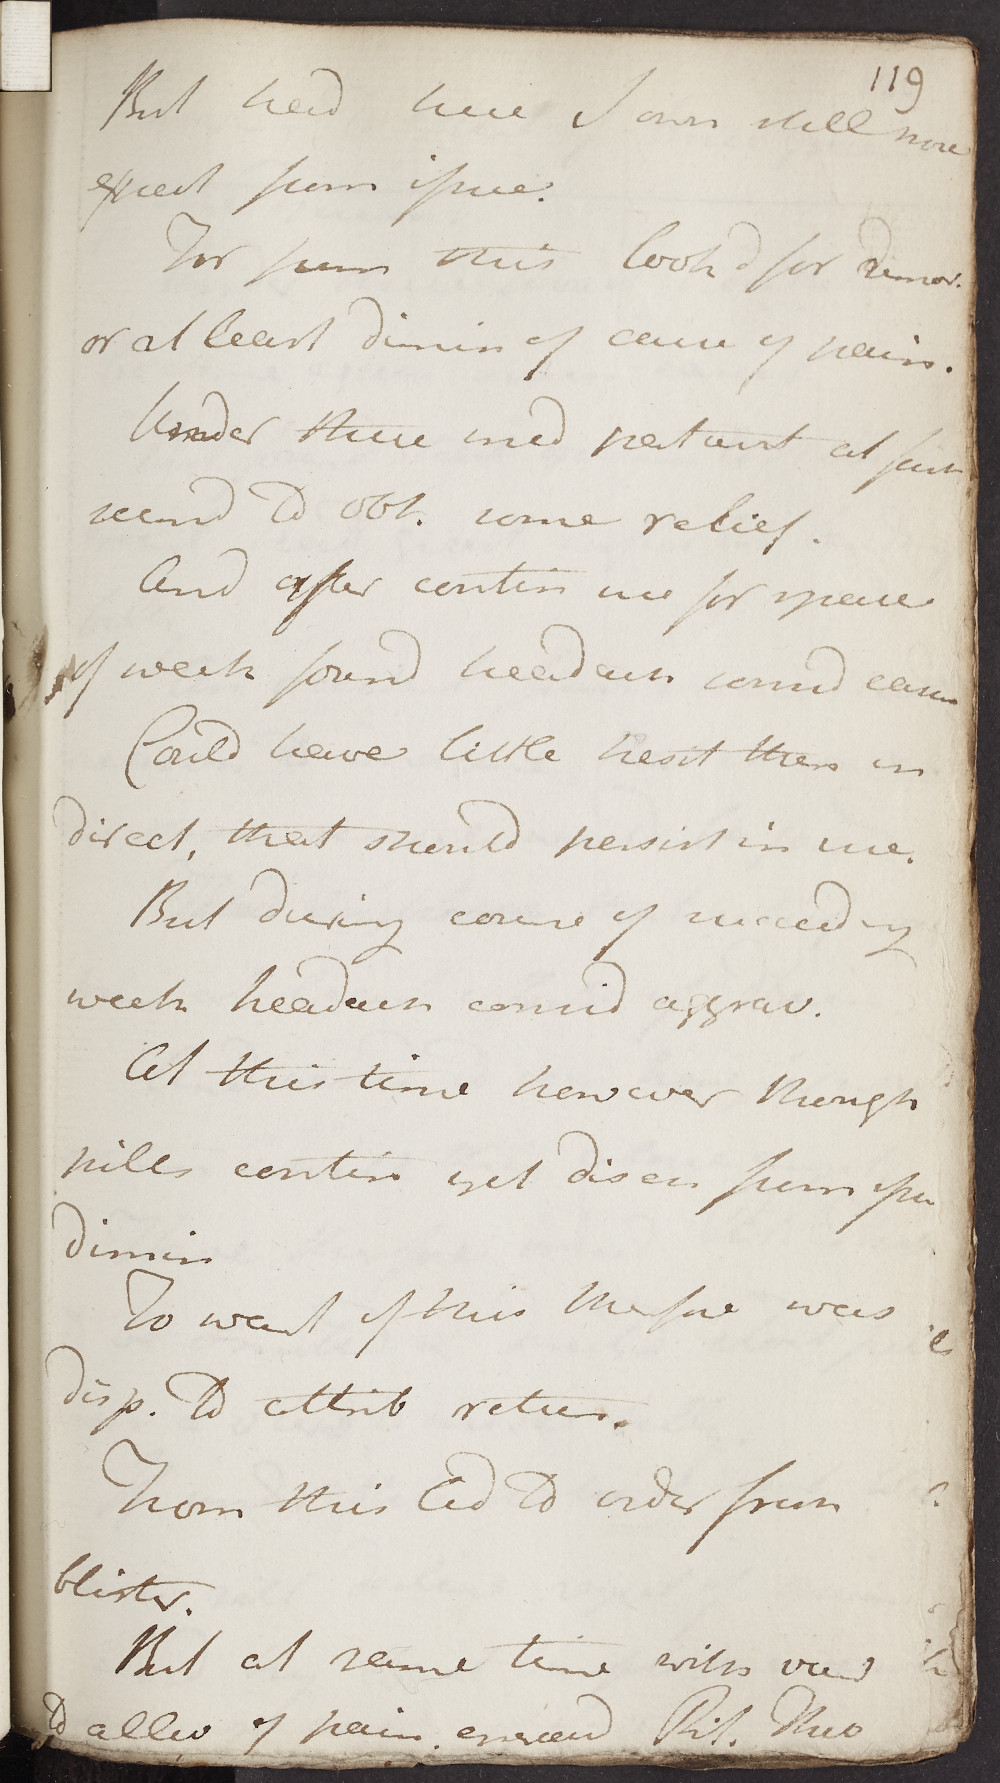 119
But had here I own still more
expect from issue.
For from this look'd for remov.
or at least dimin of cause of pain.
Under these med patient at first
seemd to obt. some relief.
And after contin use for space
of week found headach considd easier
Could have little hesit then in
direct, that should persist in use.
But during course of succeeding
week headach considd aggrav.
At this time however though
pills contin yet disch from issu
dimin
To want of this therefore was
disp. to attrib return.
From this led to order fresh
blister.
But at same time with view
to allev of pain employd Pil. Theb